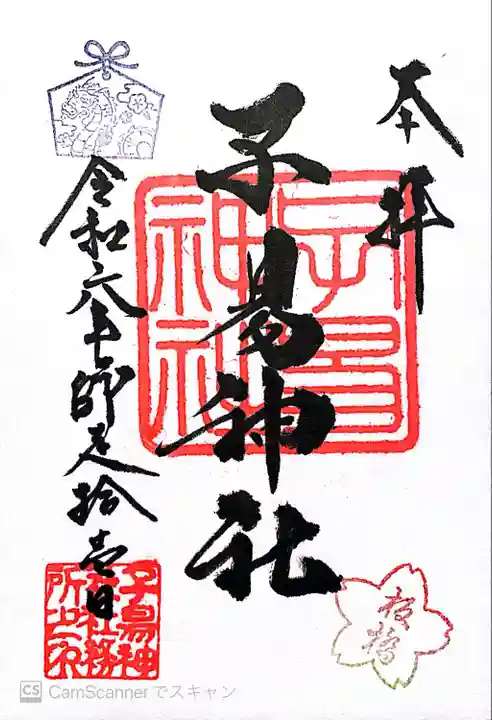 奉拝
子易神社
子易神社
令和六年師走拾壱日
子易神
社社務
所之印
板橋
CS CamScanner でスキャン